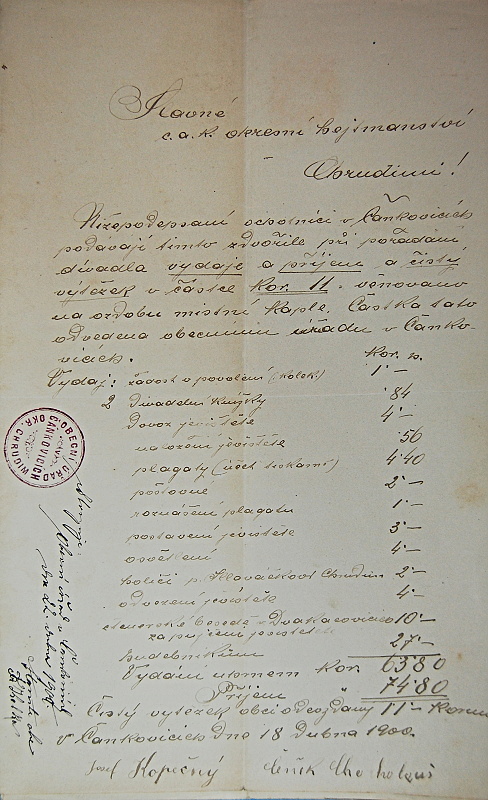 Slavné
c. a k. okresní hejtmanství
Chrudimi!
Nížepodepsaní ochotníci v Čankovicích
podávají tímto zdvořile při pořádání
divadla vydaje a příjem a čistý
výtěžek v částce Kor. 11. věnováno
na ozdobu místní kaple. Částka tato
odvedena obecnímu úřadu v Čanko-
vicích.
Kor. h.
Vydaj: žádost o povolení (kolek) 1·—
2 Divadelní knížky ·84
Dovoz jeviště 4·—
naložení jeviště ·56
plagaty (účet tiskárně) 4·40
poštovné 2·—
roznášení plagatu 1·—
postavení jeviště 3·—
osvětlení 4·—
holiči p. Slováčkovi Chrudim 2·—
odvezení jeviště 4·—
čtenářské besedě v Dvakačovicích 10·—
za půjčení jeviště
hudebníkům 27·—
Vydání úhrnem Kor. 63 80
Příjem " 74·80
Čistý výtěžek obci odevzdaný 11·— Korun
V Čankovicích dne 18 dubna 1900.
Josef Kopečný
OBECNÍ ÚŘAD
ČANKOVICÍCH
OKR. CHRUDIM
Obecní úřad v Čankovicích